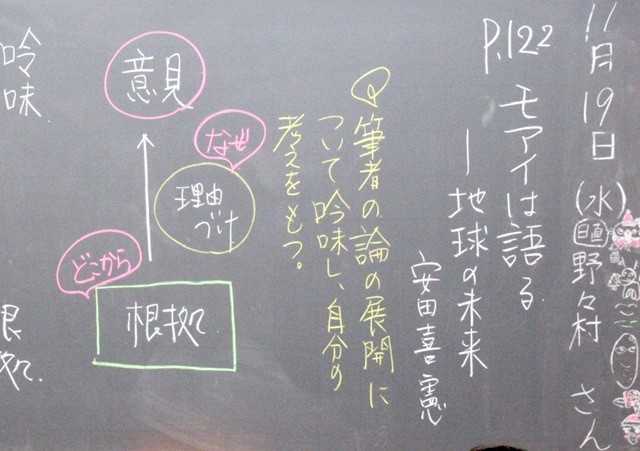 11月19日(水)日直野々村さん
P.122 モアイは語る
―地球の未来
安田喜憲
Q筆者の論の展開に
ついて吟味し、自分の
考えをもつ。
なぜ
意見
理由
づけ
どこから
根拠
吟味
根拠